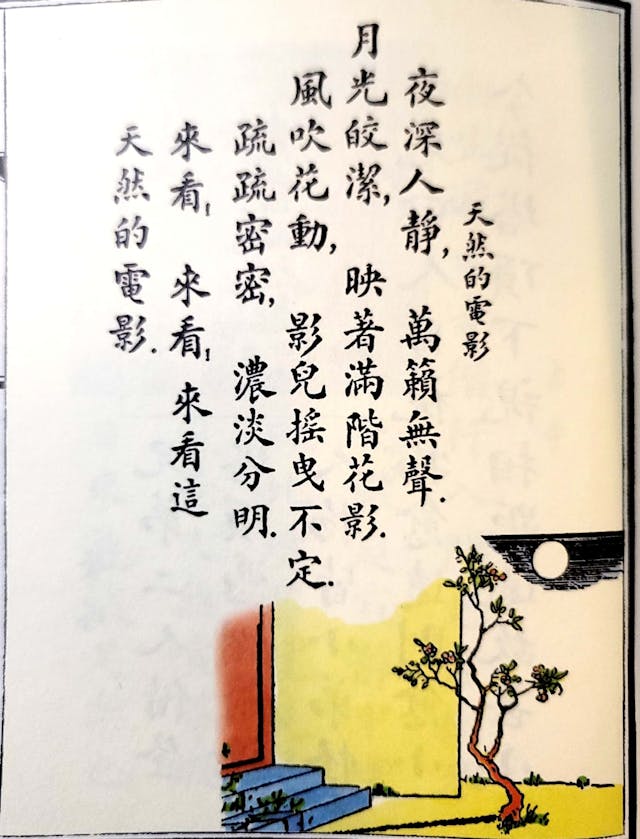 天然的電影
夜深人靜, 萬籟無聲.
月光皎潔, 映著滿階花影.
風吹花動, 影兒摇曳不定.
疏疏密密, 濃淡分明.
來看, 來看, 來看這
天然的電影.